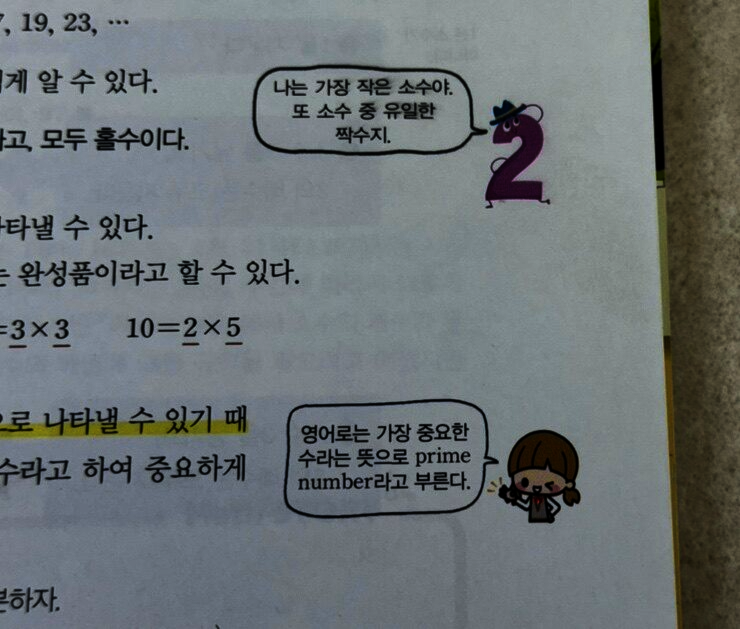 7, 19, 23, …
게 알 수 있다.
나는 가장 작은 소수야.
또 소수 중 유일한
짝수지.
2
고, 모두 홀수이다.
나타낼 수 있다.
는 완성품이라고 할 수 있다.
=3×3 10=2×5
으로 나타낼 수 있기 때
수라고 하여 중요하게
영어로는 가장 중요한
수라는 뜻으로 prime
number라고 부른다.
분하자.